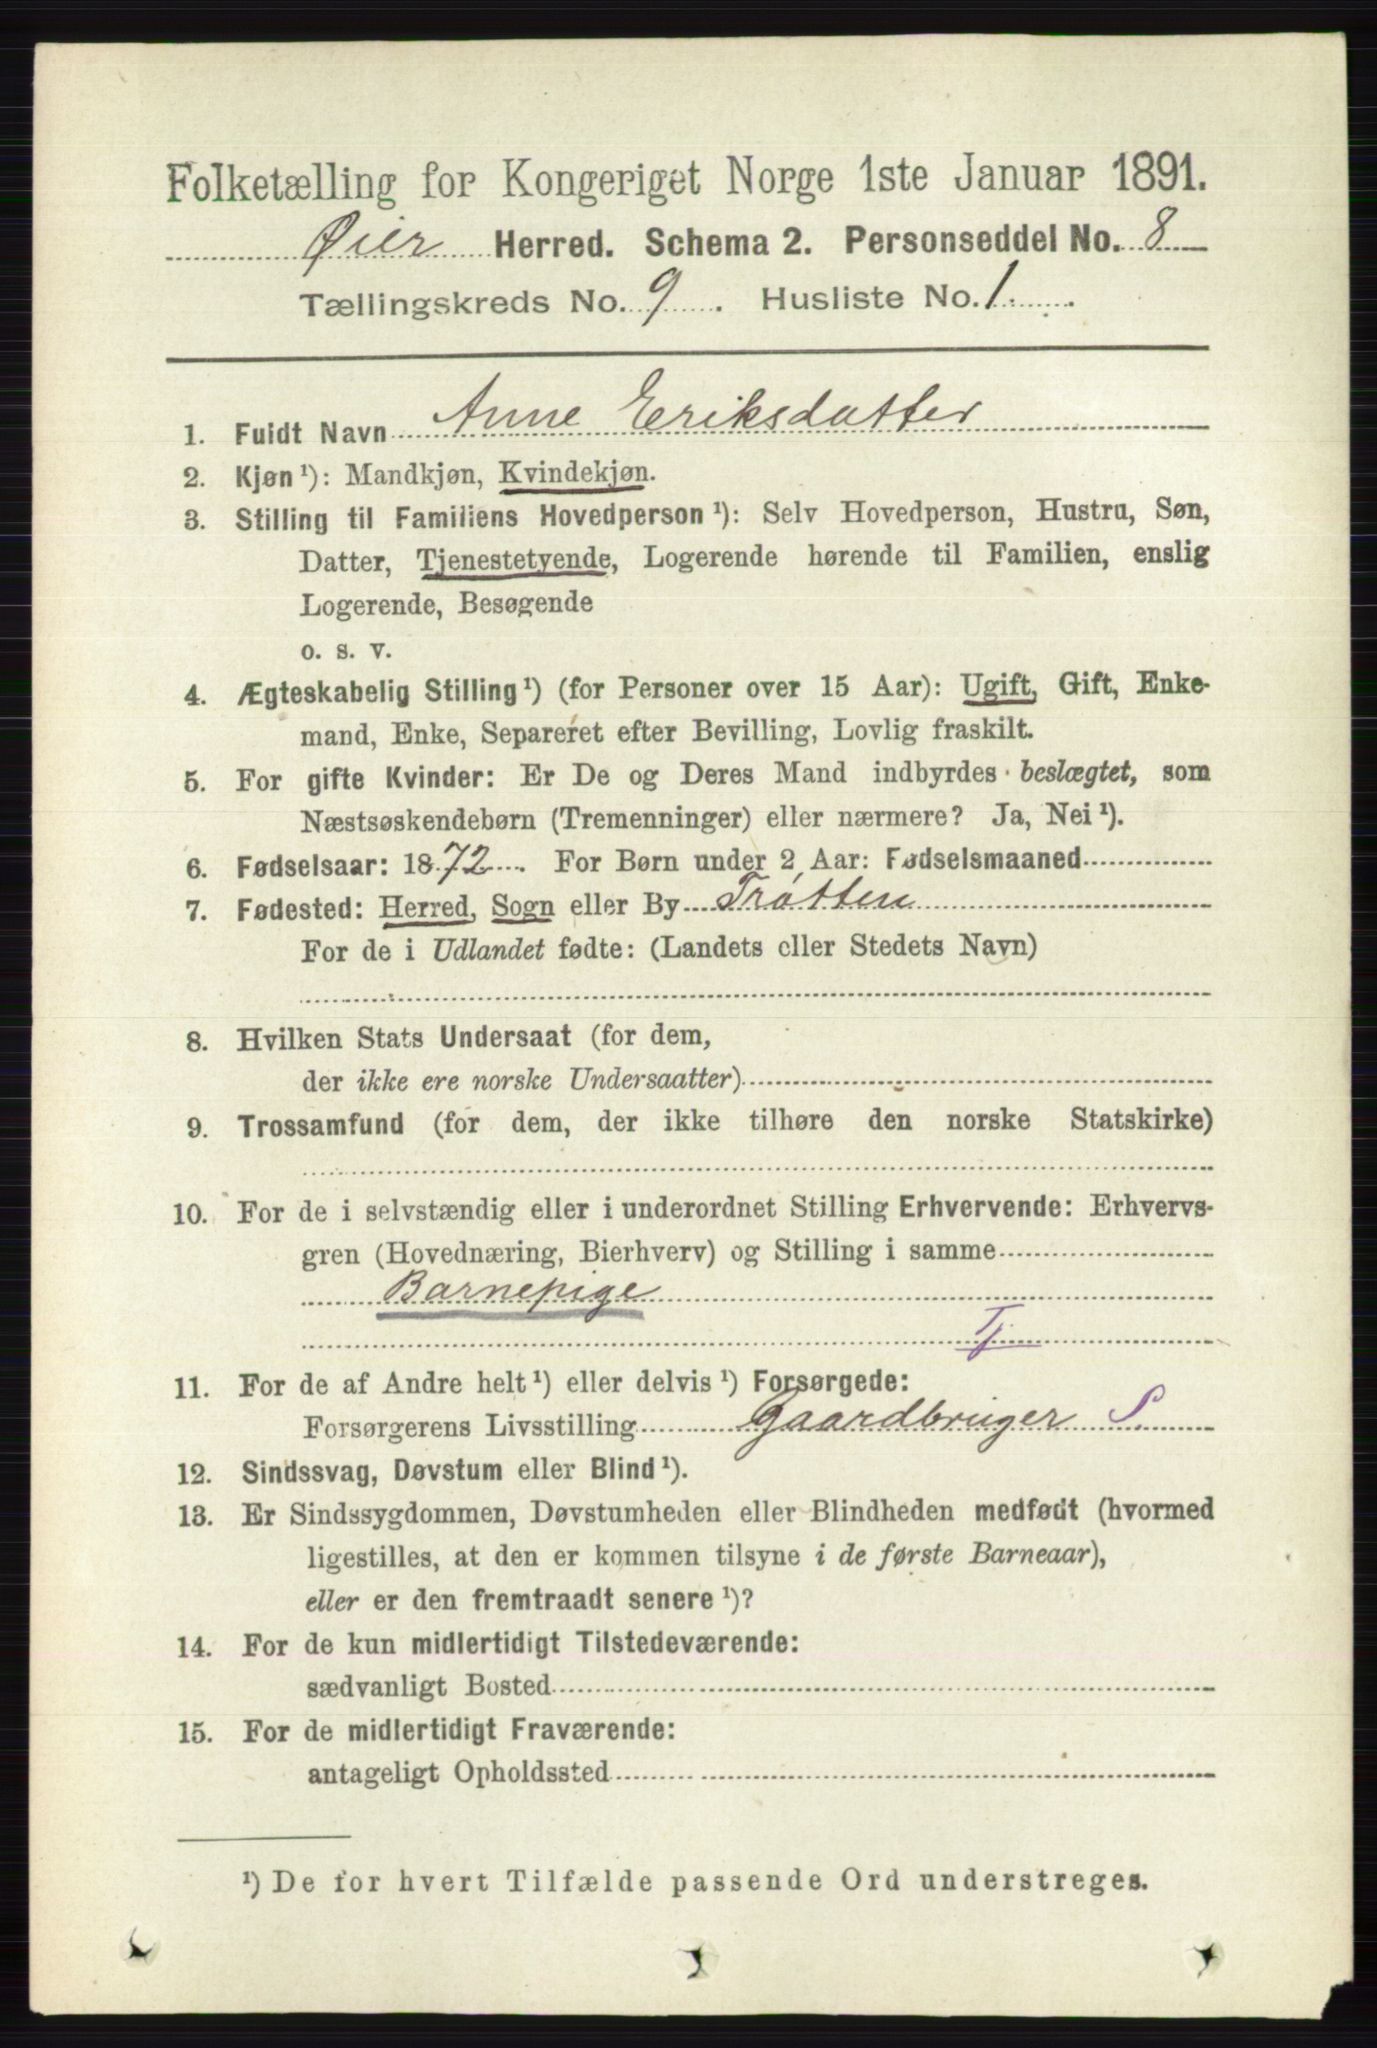 Folketælling for Kongeriget Norge 1ste Januar 1891.
Øier Herred. Schema 2. Personseddel No. 8
Tællingskreds No. 9. Husliste No. 1.
1. Fuldt Navn Anne Eriksdatter
2. Kjøn ¹): Mandkjøn, Kvindekjøn.
3. Stilling til Familiens Hovedperson ¹): Selv Hovedperson, Hustru, Søn,
Datter, Tjenestetyende, Logerende hørende til Familien, enslig
Logerende, Besøgende
o. s. v.
4. Ægteskabelig Stilling ¹) (for Personer over 15 Aar): Ugift, Gift, Enke-
mand, Enke, Separeret efter Bevilling, Lovlig fraskilt.
5. For gifte Kvinder: Er De og Deres Mand indbyrdes beslægtet, som
Næstsøskendebørn (Tremenninger) eller nærmere? Ja, Nei ¹).
6. Fødselsaar: 1872. For Børn under 2 Aar: Fødselsmaaned
7. Fødested: Herred, Sogn eller By Tròtten
For de i Udlandet fødte: (Landets eller Stedets Navn)
8. Hvilken Stats Undersaat (for dem,
der ikke ere norske Undersaatter)
9. Trossamfund (for dem, der ikke tilhøre den norske Statskirke)
10. For de i selvstændig eller i underordnet Stilling Erhvervende: Erhvervs-
gren (Hovednæring, Bierhverv) og Stilling i samme
Barnepige
Tj
11. For de af Andre helt ¹) eller delvis ¹) Forsørgede:
Forsørgerens Livsstilling Gaardbruger S.
12. Sindssvag, Døvstum eller Blind ¹).
13. Er Sindssygdommen, Døvstumheden eller Blindheden medfødt (hvormed
ligestilles, at den er kommen tilsyne i de første Barneaar),
eller er den fremtraadt senere ¹)?
14. For de kun midlertidigt Tilstedeværende:
sædvanligt Bosted
15. For de midlertidigt Fraværende:
antageligt Opholdssted
¹) De for hvert Tilfælde passende Ord understreges.